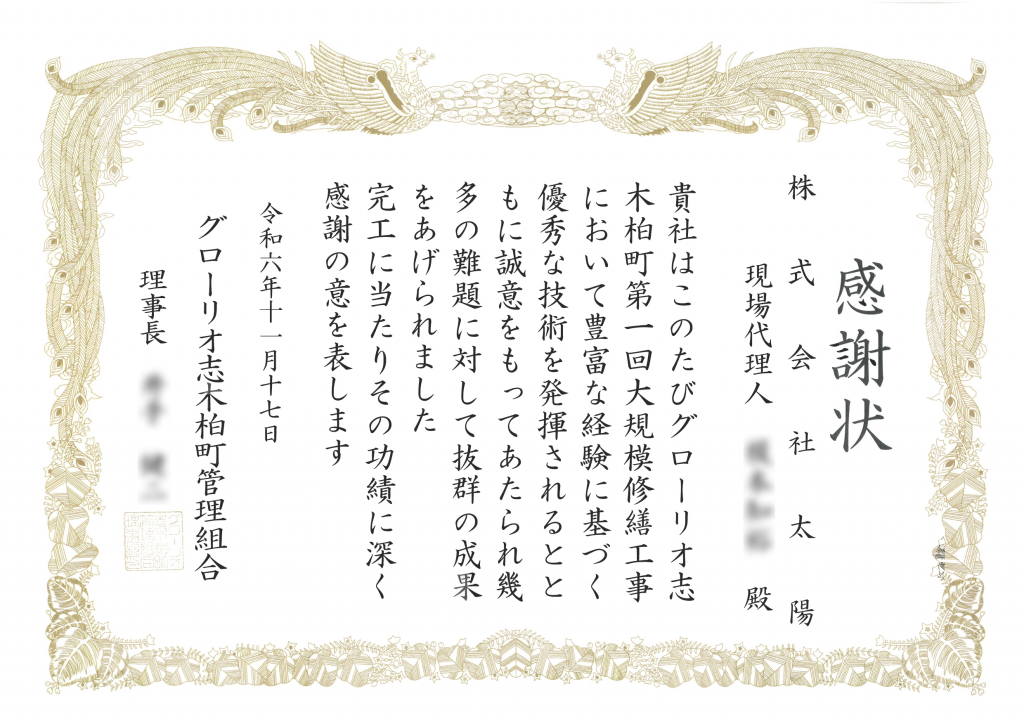 感謝状
株式会社太陽
現場代理人 殿
貴社はこのたびグローリオ志
木柏町第一回大規模修繕工事
において豊富な経験に基づく
優秀な技術を発揮されるとと
もに誠意をもってあたられ幾
多の難題に対して抜群の成果
をあげられました
完工に当たりその功績に深く
感謝の意を表します
令和六年十一月十七日
グローリオ志木柏町管理組合
理事長